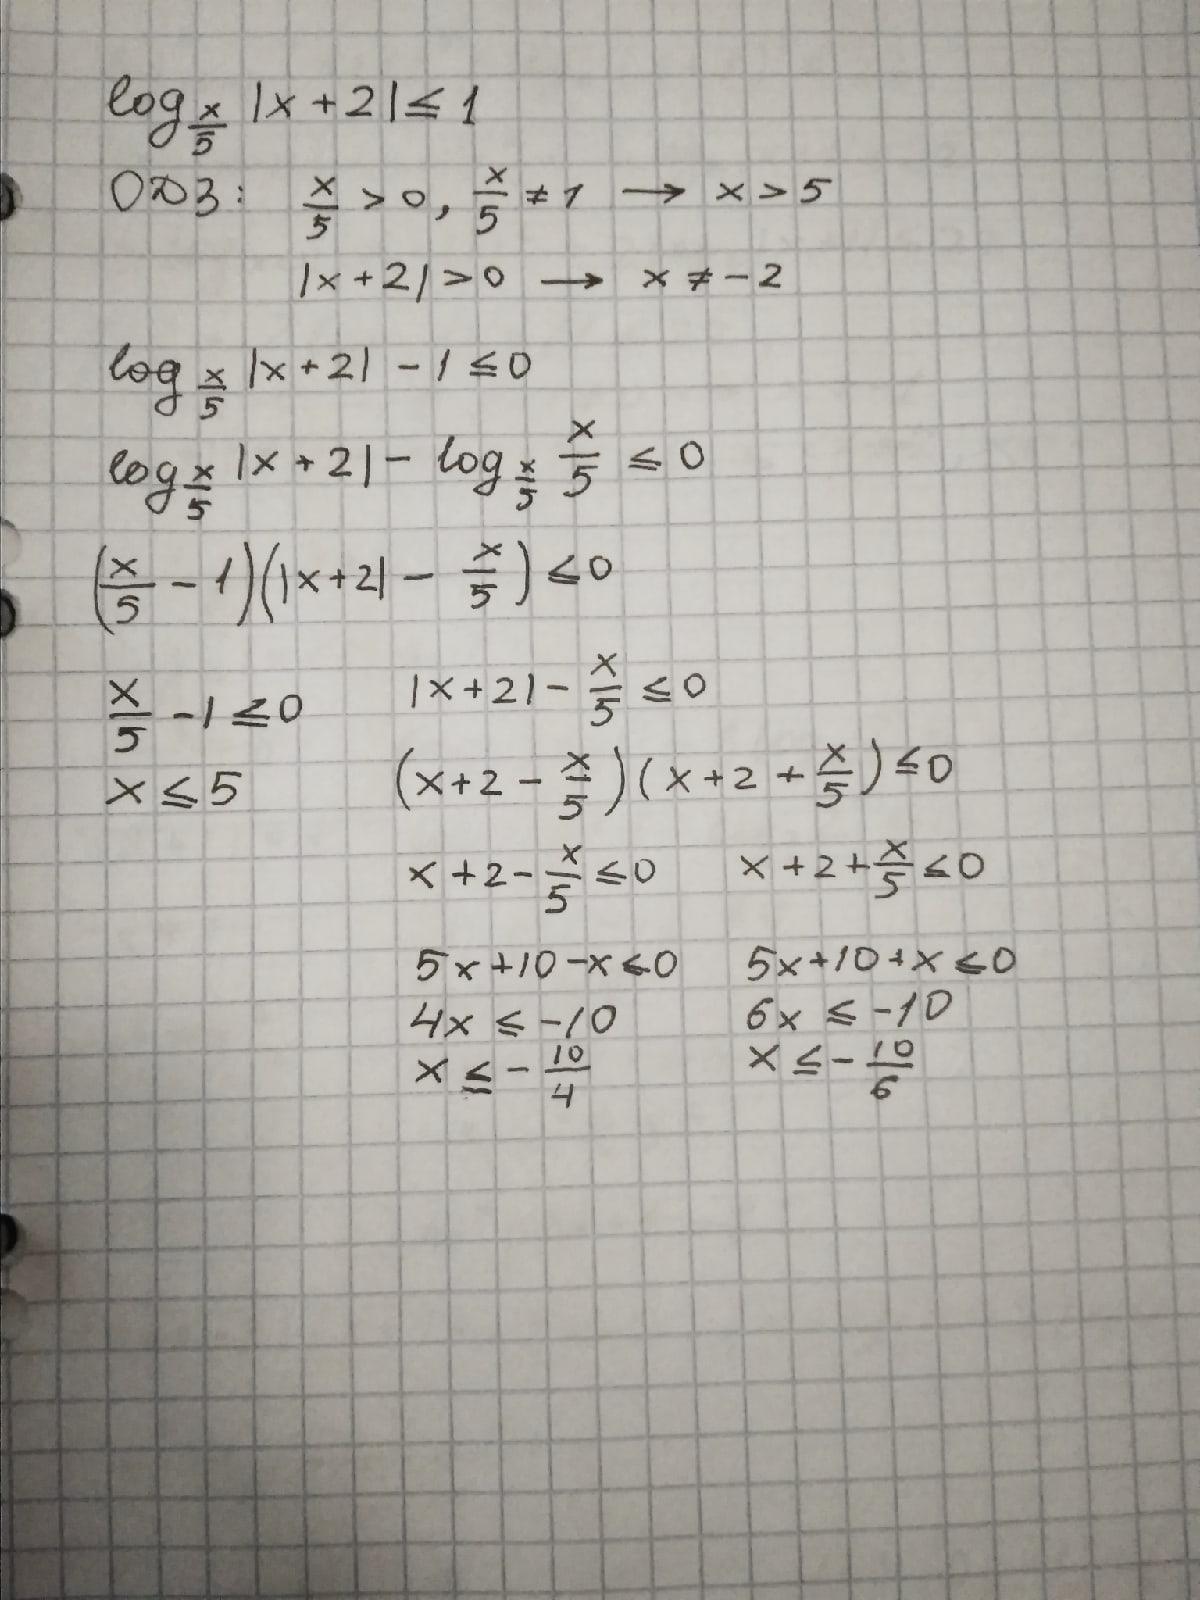 log_{x/5} |x + 2| ≤ 1
ОДЗ: x/5 > 0, x/5 ≠ 1 → x > 5
|x + 2| > 0 → x ≠ -2
log_{x/5} |x + 2| - 1 ≤ 0
log_{x/5} |x + 2| - log_{x/5} x/5 ≤ 0
(x/5 - 1)(|x+2| - x/5) ≤ 0
x/5 - 1 ≤ 0
x ≤ 5
|x+2| - x/5 ≤ 0
(x+2 - x/5)(x+2 + x/5) ≤ 0
x+2 - x/5 ≤ 0
5x+10-x ≤ 0
4x ≤ -10
x ≤ - 10/4
x+2+x/5 ≤ 0
5x+10+x ≤ 0
6x ≤ -10
x ≤ - 10/6